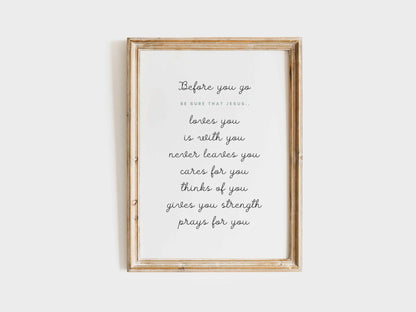 Before you go
BE SURE THAT JESUS..
loves you
is with you
never leaves you
cares for you
thinks of you
gives you strength
prays for you